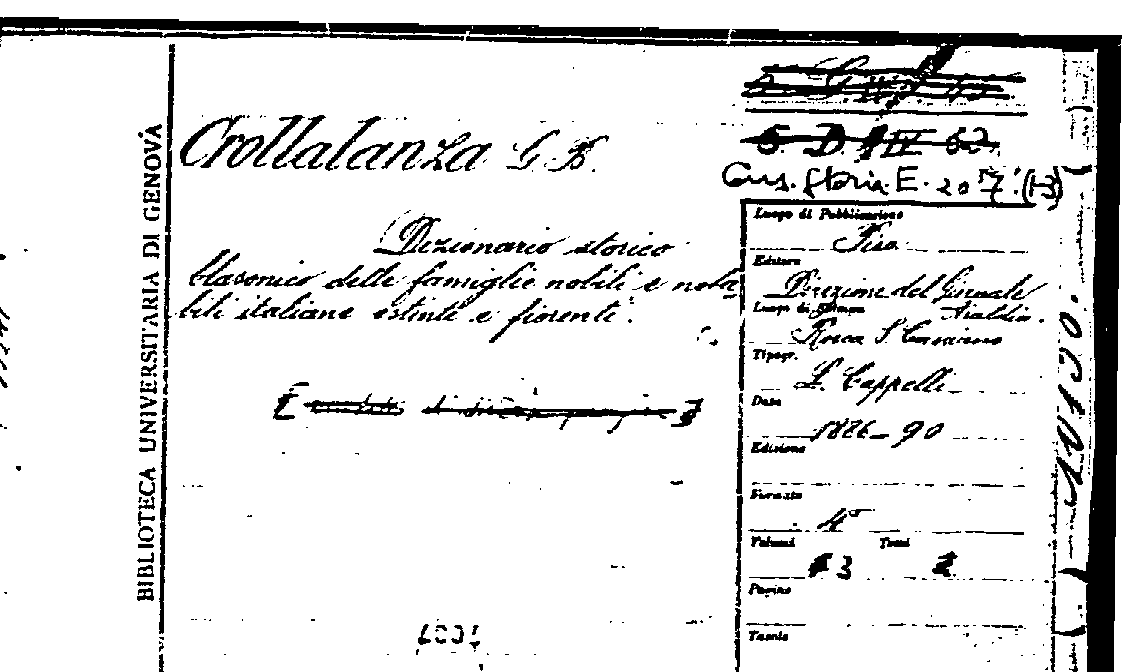 BIBLIOTECA UNIVERSITARIA DI GENOVA
Crollalanza G. B.
Dizionario storico
blasonico delle famiglie nobili e nota
bili italiane estinte e fiorenti.
5. D. IV 62.
Cons. Storia. E. 207. (1-3)
Luogo di Pubblicazione
Pisa
Editore
Direzione del Giornale
Araldico.
Luogo di Stampa
Rocca S. Casciano
Tipogr.
L. Cappelli
Data
1886-90
Edizione
Formato
4°
Volumi Tomi
3
Pagine
Tavole